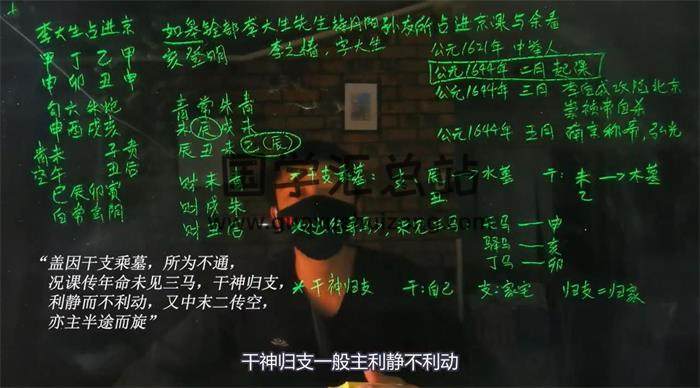 李大生占进京
如皋铨部李大生先生 丹阳孙友所占进京课与余看
甲 丁 乙 甲
申 卯 丑 申
亥登明
李之椿，字大生
公元1621年 中举人
公元1644年 二月 起课
公元1644年 三月 李自成攻陷北京
崇祯帝自杀
公元1644年 五月 南京称帝，弘光
勾六朱蛇
申酉戌亥
青未 子贵
空午 丑后
巳辰卯寅
白常玄阴
青常朱青
未辰戌未
辰丑未乙(辰)
财未青
财戌朱
财丑后
干支乘墓： 支：辰→水墓 干：未→木墓
丑 乙
寻马>，未见三马
天马——申
驿马——亥
丁马——卯
*干神归支 干：自己 支：家宅 归支=归家
国学汇总站
“盖因干支乘墓，所为不通，
况课传年命未见三马，干神归支，
利静而不利动，又中末二传空，
亦主半途而旋”
干神归支一般主利静不利动